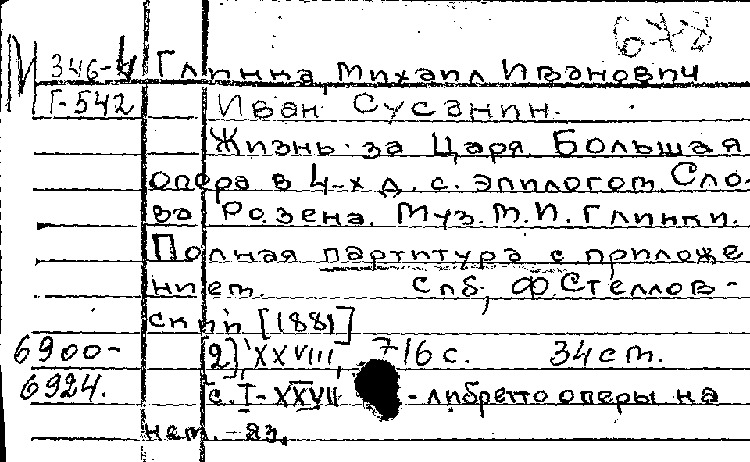 678
М 346-4 Глинка, Михаил Иванович
Г-542 Иван Сусанин.
Жизнь за Царя. Большая
опера в 4-х д. с. эпилогом. Сло-
ва Розена. Муз. М.И. Глинки.
Полная партитура с приложе
нием. Спб, Ф. Стеллов-
ский [1881]
6900- [2], XXVIII, 716 с. 34 см.
6924. с. I-XXVII - либретто оперы на
нем. яз.